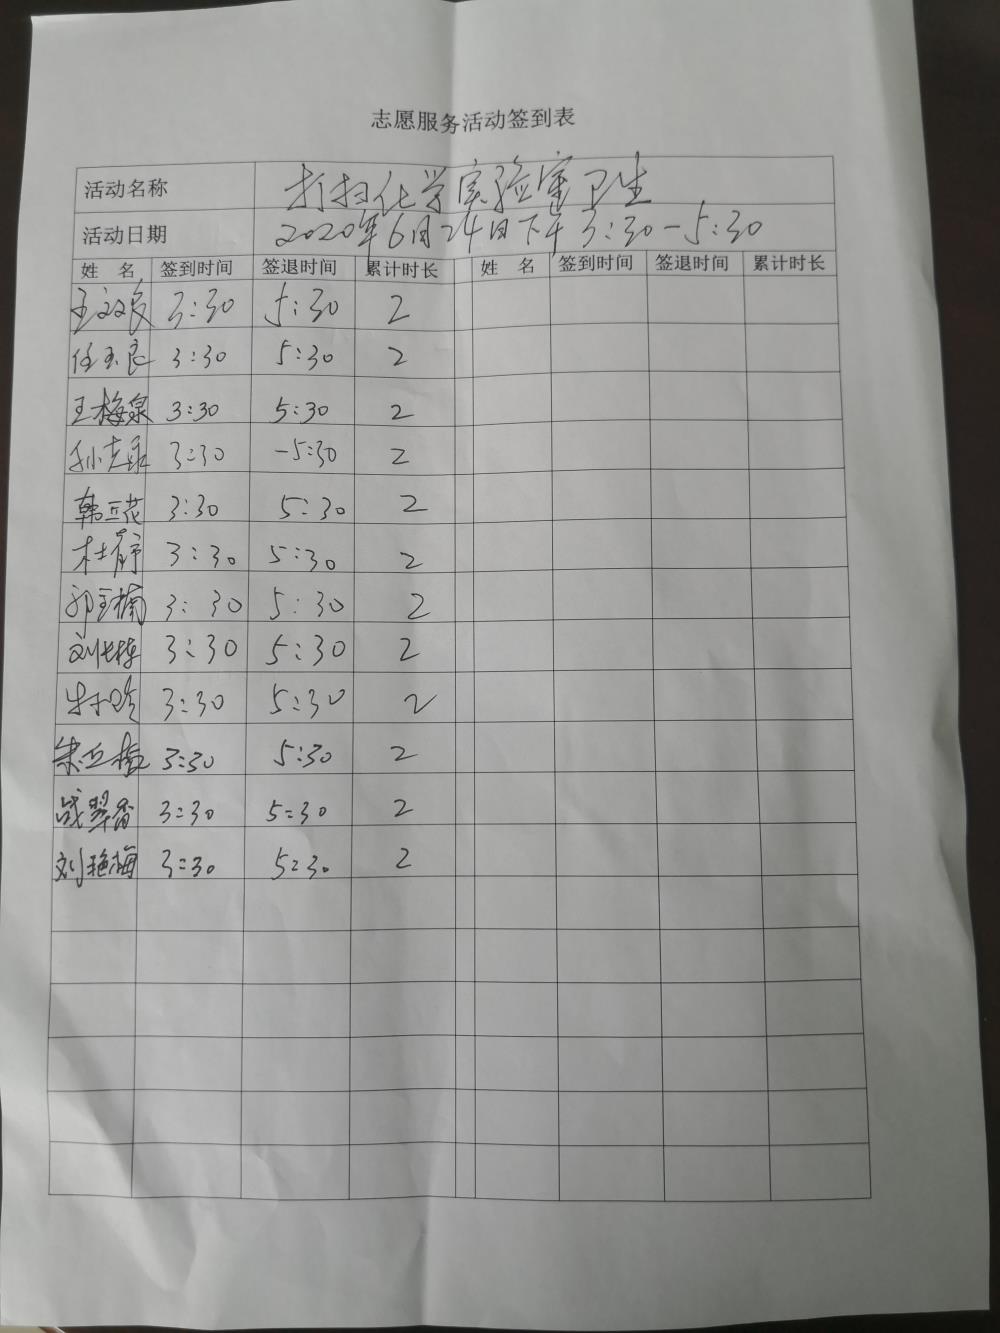 志愿服务活动签到表
活动名称 打扫化学实验室卫生
活动日期 2020年6月24日下午3:30-5:30
姓 名 签到时间 签退时间 累计时长 姓 名 签到时间 签退时间 累计时长
王 3:30 5:30 2
任玉良 3:30 5:30 2
王梅泉 3:30 5:30 2
孙 3:30 -5:30 2
韩兰花 3:30 5:30 2
杜 3:30 5:30 2
郭玉楠 3:30 5:30 2
刘 3:30 5:30 2
3:30 5:30 2
朱 3:30 5:30 2
战翠香 3:30 5:30 2
刘艳梅 3:30 5:30 2